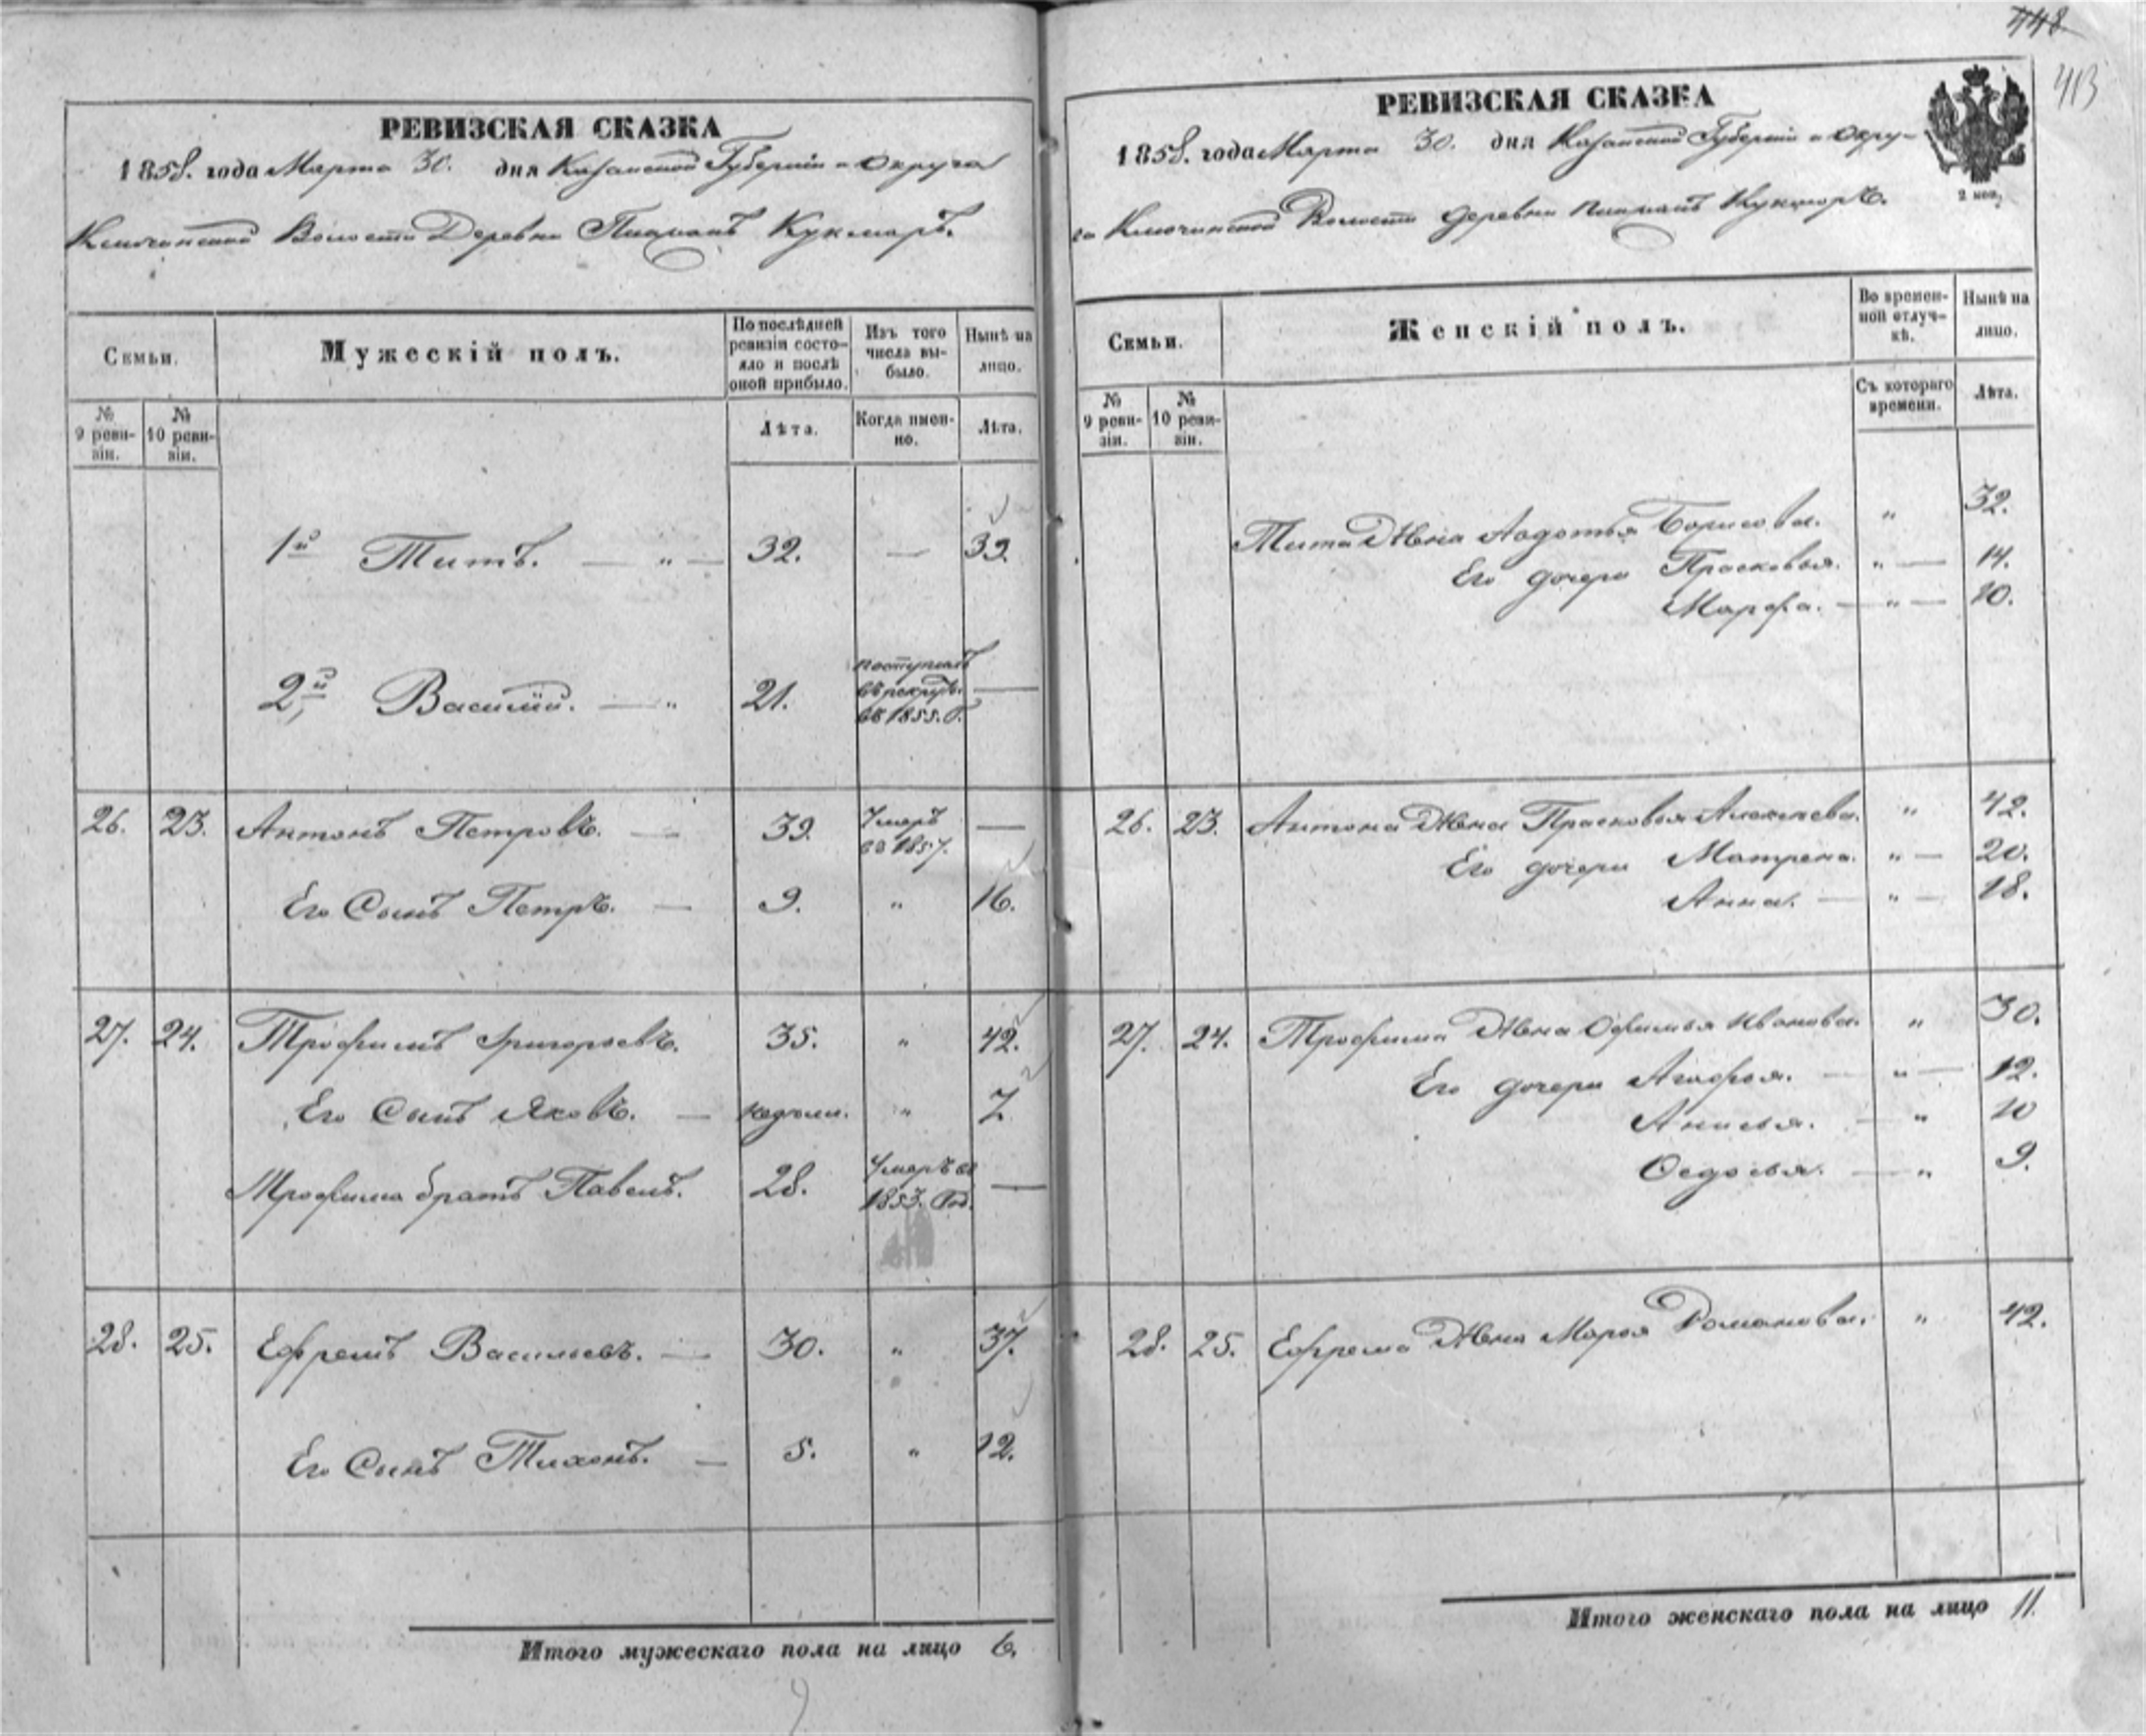 448
413
РЕВИЗСКАЯ СКАЗКА
1858. года Марта 30. дня Казанской Губернiи и Округа
Ключинской Волости Деревни Кукморъ.
Семьи.
Мужескiй полъ.
По послѣдней ревизiи состояло и послѣ оной прибыло.
Изъ того числа выбыло.
Нынѣ на лицо.
№ 9 ревизiи.
№ 10 ревизiи.
Лѣта.
Когда именно.
Лѣта.
1й Титъ. — „ — 32. — 39.
2й Василiй. — „ 21. поступилъ въ рекруты въ 1855. г. —
26. 23. Антонъ Петровъ. — 39. Умеръ въ 1857. —
Его Сынъ Петръ. — 9. „ 16.
27. 24. Трофимъ Григорьевъ. 35. „ 42.
Его Сынъ Яковъ. — недѣли. „ 7.
Трофима братъ Павелъ. 28. Умеръ въ 1853. Год. —
28. 25. Ефремъ Васильевъ. — 30. „ 37.
Его Сынъ Тихонъ. — 5. „ 12.
Итого мужескаго пола на лицо 6.
РЕВИЗСКАЯ СКАЗКА
2 коп.
1858. года Марта 30. дня Казанской Губернiи и Окру-
га Ключинской Волости деревни Кукморъ.
Семьи.
Женскiй полъ.
Во временной отлучкѣ.
Нынѣ на лицо.
№ 9 ревизiи.
№ 10 ревизiи.
Съ котораго времени.
Лѣта.
Тита Жена Авдотья Борисова. „ 32.
Его дочери Прасковья. „ — 14.
Марфа. — „ — 10.
26. 23. Антона Жена Прасковья Алексѣева. „ 42.
Его дочери Матрена. „ — 20.
Анна. — „ — 18.
27. 24. Трофима Жена Офимья Иванова. „ 30.
Его дочери Агафья. — „ — 12.
Анисья. — „ 10
Федосья. — „ 9.
28. 25. Ефрема Жена Марья Романова. „ 42.
Итого женскаго пола на лицо 11.